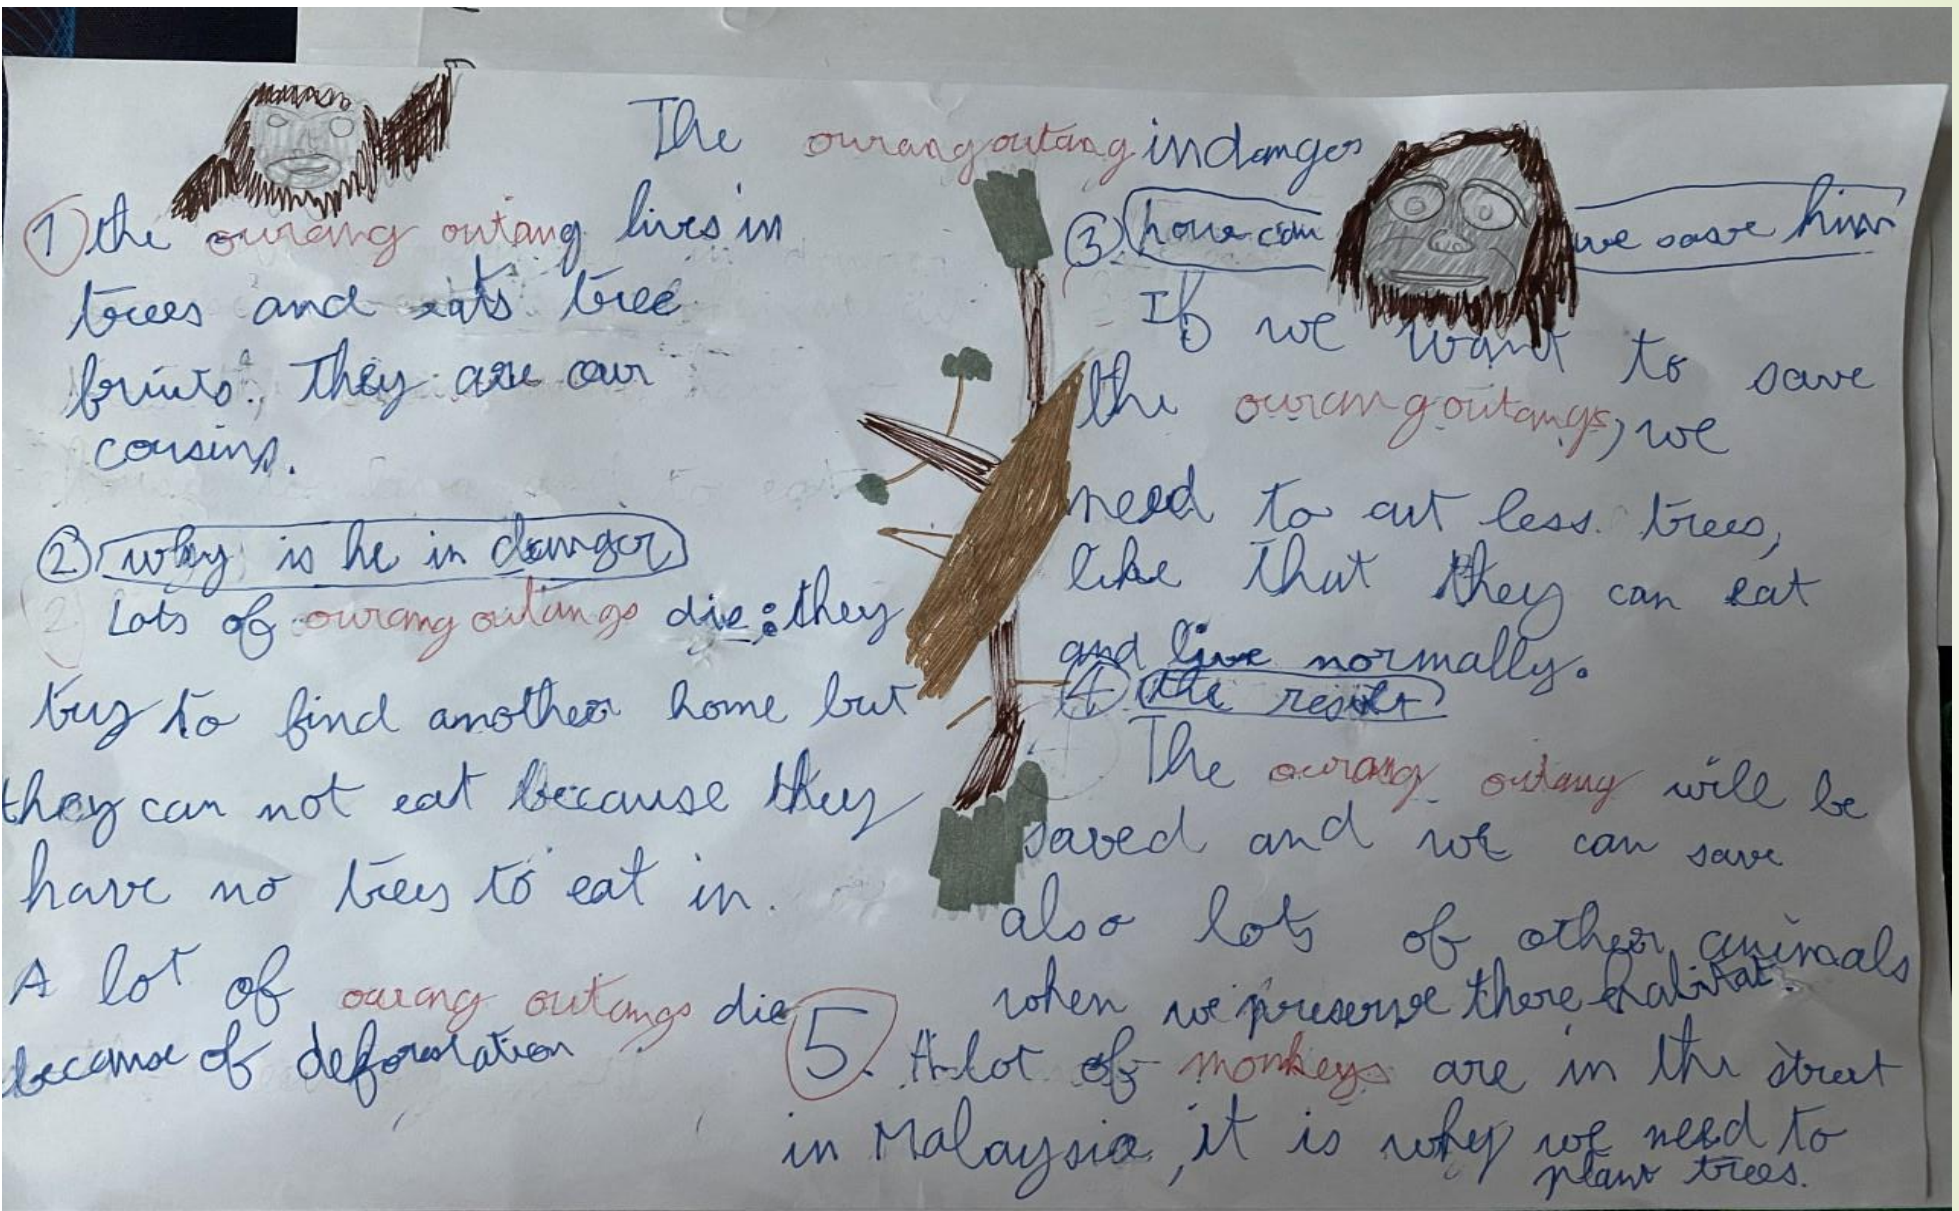 The ourangoutang in danger
1 the ourang outang lives in
trees and eats tree
fruits. They are our
cousins.
2 why is he in danger
2 Lots of ourangoutangs die: they
try to find another home but
they can not eat because they
have no trees to eat in.
A lot of ourang outangs die
because of deforestation
3 how can we save him
If we want to save
the ourangoutangs, we
need to cut less trees,
like that they can eat
and live normally.
4 the result
The ourang outang will be
saved and we can save
also lots of other animals
when we preserve there habitat.
5. A lot of monkeys are in the street
in Malaysia, it is why we need to
plant trees.